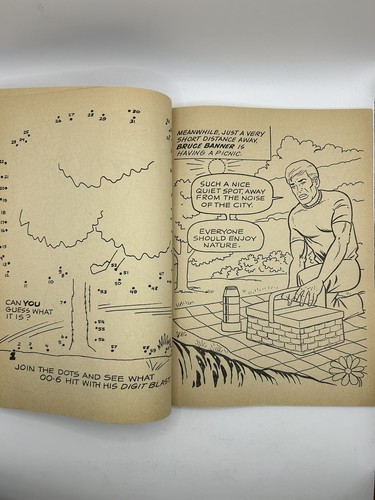 CAN YOU
GUESS WHAT
IT IS?
JOIN THE DOTS AND SEE WHAT
OO-6 HIT WITH HIS DIGIT BLAST
MEANWHILE, JUST A VERY
SHORT DISTANCE AWAY,
BRUCE BANNER IS
HAVING A PICNIC.
SUCH A NICE
QUIET SPOT, AWAY
FROM THE NOISE
OF THE CITY.
EVERYONE
SHOULD ENJOY
NATURE.